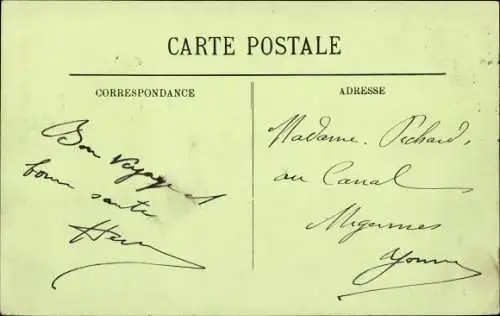 CARTE POSTALE
CORRESPONDANCE
ADRESSE
Bon voyage et
bonne santé
Madame Pichard,
au Canal
Migennes
Yonne